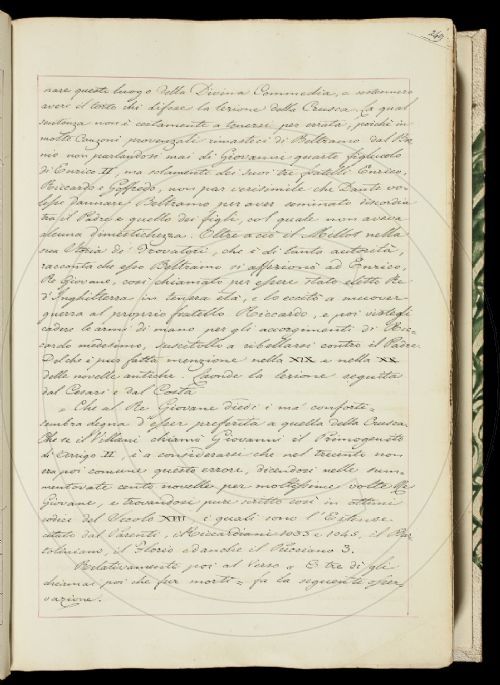 249
nare questo luogo della Divina Commedia, e sostennero
avere il torto chi difese la lezione della Crusca. La qual
sentenza non è certamente a tenersi per errata, poichè in
molte Canzoni provenzali rimasteci di Beltramo dal Bor
nio non parlandosi mai di Giovanni quarto figliuolo
di Enrico II, ma solamente dei suoi tre fratelli Enrico,
Riccardo e Goffredo, non par verisimile che Dante vo-
lesse dannare Beltramo per aver seminato discordia
tra il Padre e quello dei figli, col quale non aveva
alcuna dimestichezza. Oltre a ciò il Millot nella
sua Storia de' Trovatori, che è di tanta autorità,
racconta che esso Beltramo si affezionò ad Enrico,
Re Giovane, così chiamato per essere stato eletto Re
d'Inghilterra in tenera età, e lo eccitò a muover
guerra al proprio fratello Riccardo, e poi vistegli
cadere le armi di mano per gli accorgimenti di Ric
cardo medesimo, suscitollo a ribellarsi contro il Padre
Del che è pur fatta menzione nella XIX e nella XX
delle novelle antiche. Laonde la lezione seguita
dal Cesari e dal Costa
" Che al Re Giovane diedi i ma' conforti "
sembra degna d'esser preferita a quella della Crusca.
Che se il Villani chiamò Giovanni il Primogenito
di Arrigo II, è a considerarsi che nel trecento non
era poi comune questo errore, dicendosi nelle sum-
mentovate cento novelle per moltissime volte Re
Giovane, e trovandose pure scritto così in ottimi
codici del Secolo XIII, i quali sono l'Estense
citato dal Parenti, i Riccardiani 1033 e 1045, il Bar
toliniano, il Florio ed anche il Pucciano 3.
Relativamente poi al Verso " E tre di gli
chiamai poi che fur morti " fa la seguente osser-
vazione.